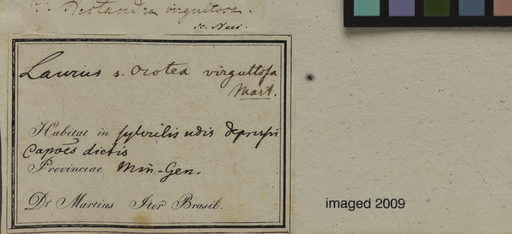 Nectandra virgultosa.
sc. Nees.
Laurus s. Ocotea virgultosa
Mart.
Habitat in sylvulis udis depressis
Capoēs dictis
Provinciae Min-Gen.
Dr Martius Iter Brasil.
imaged 2009